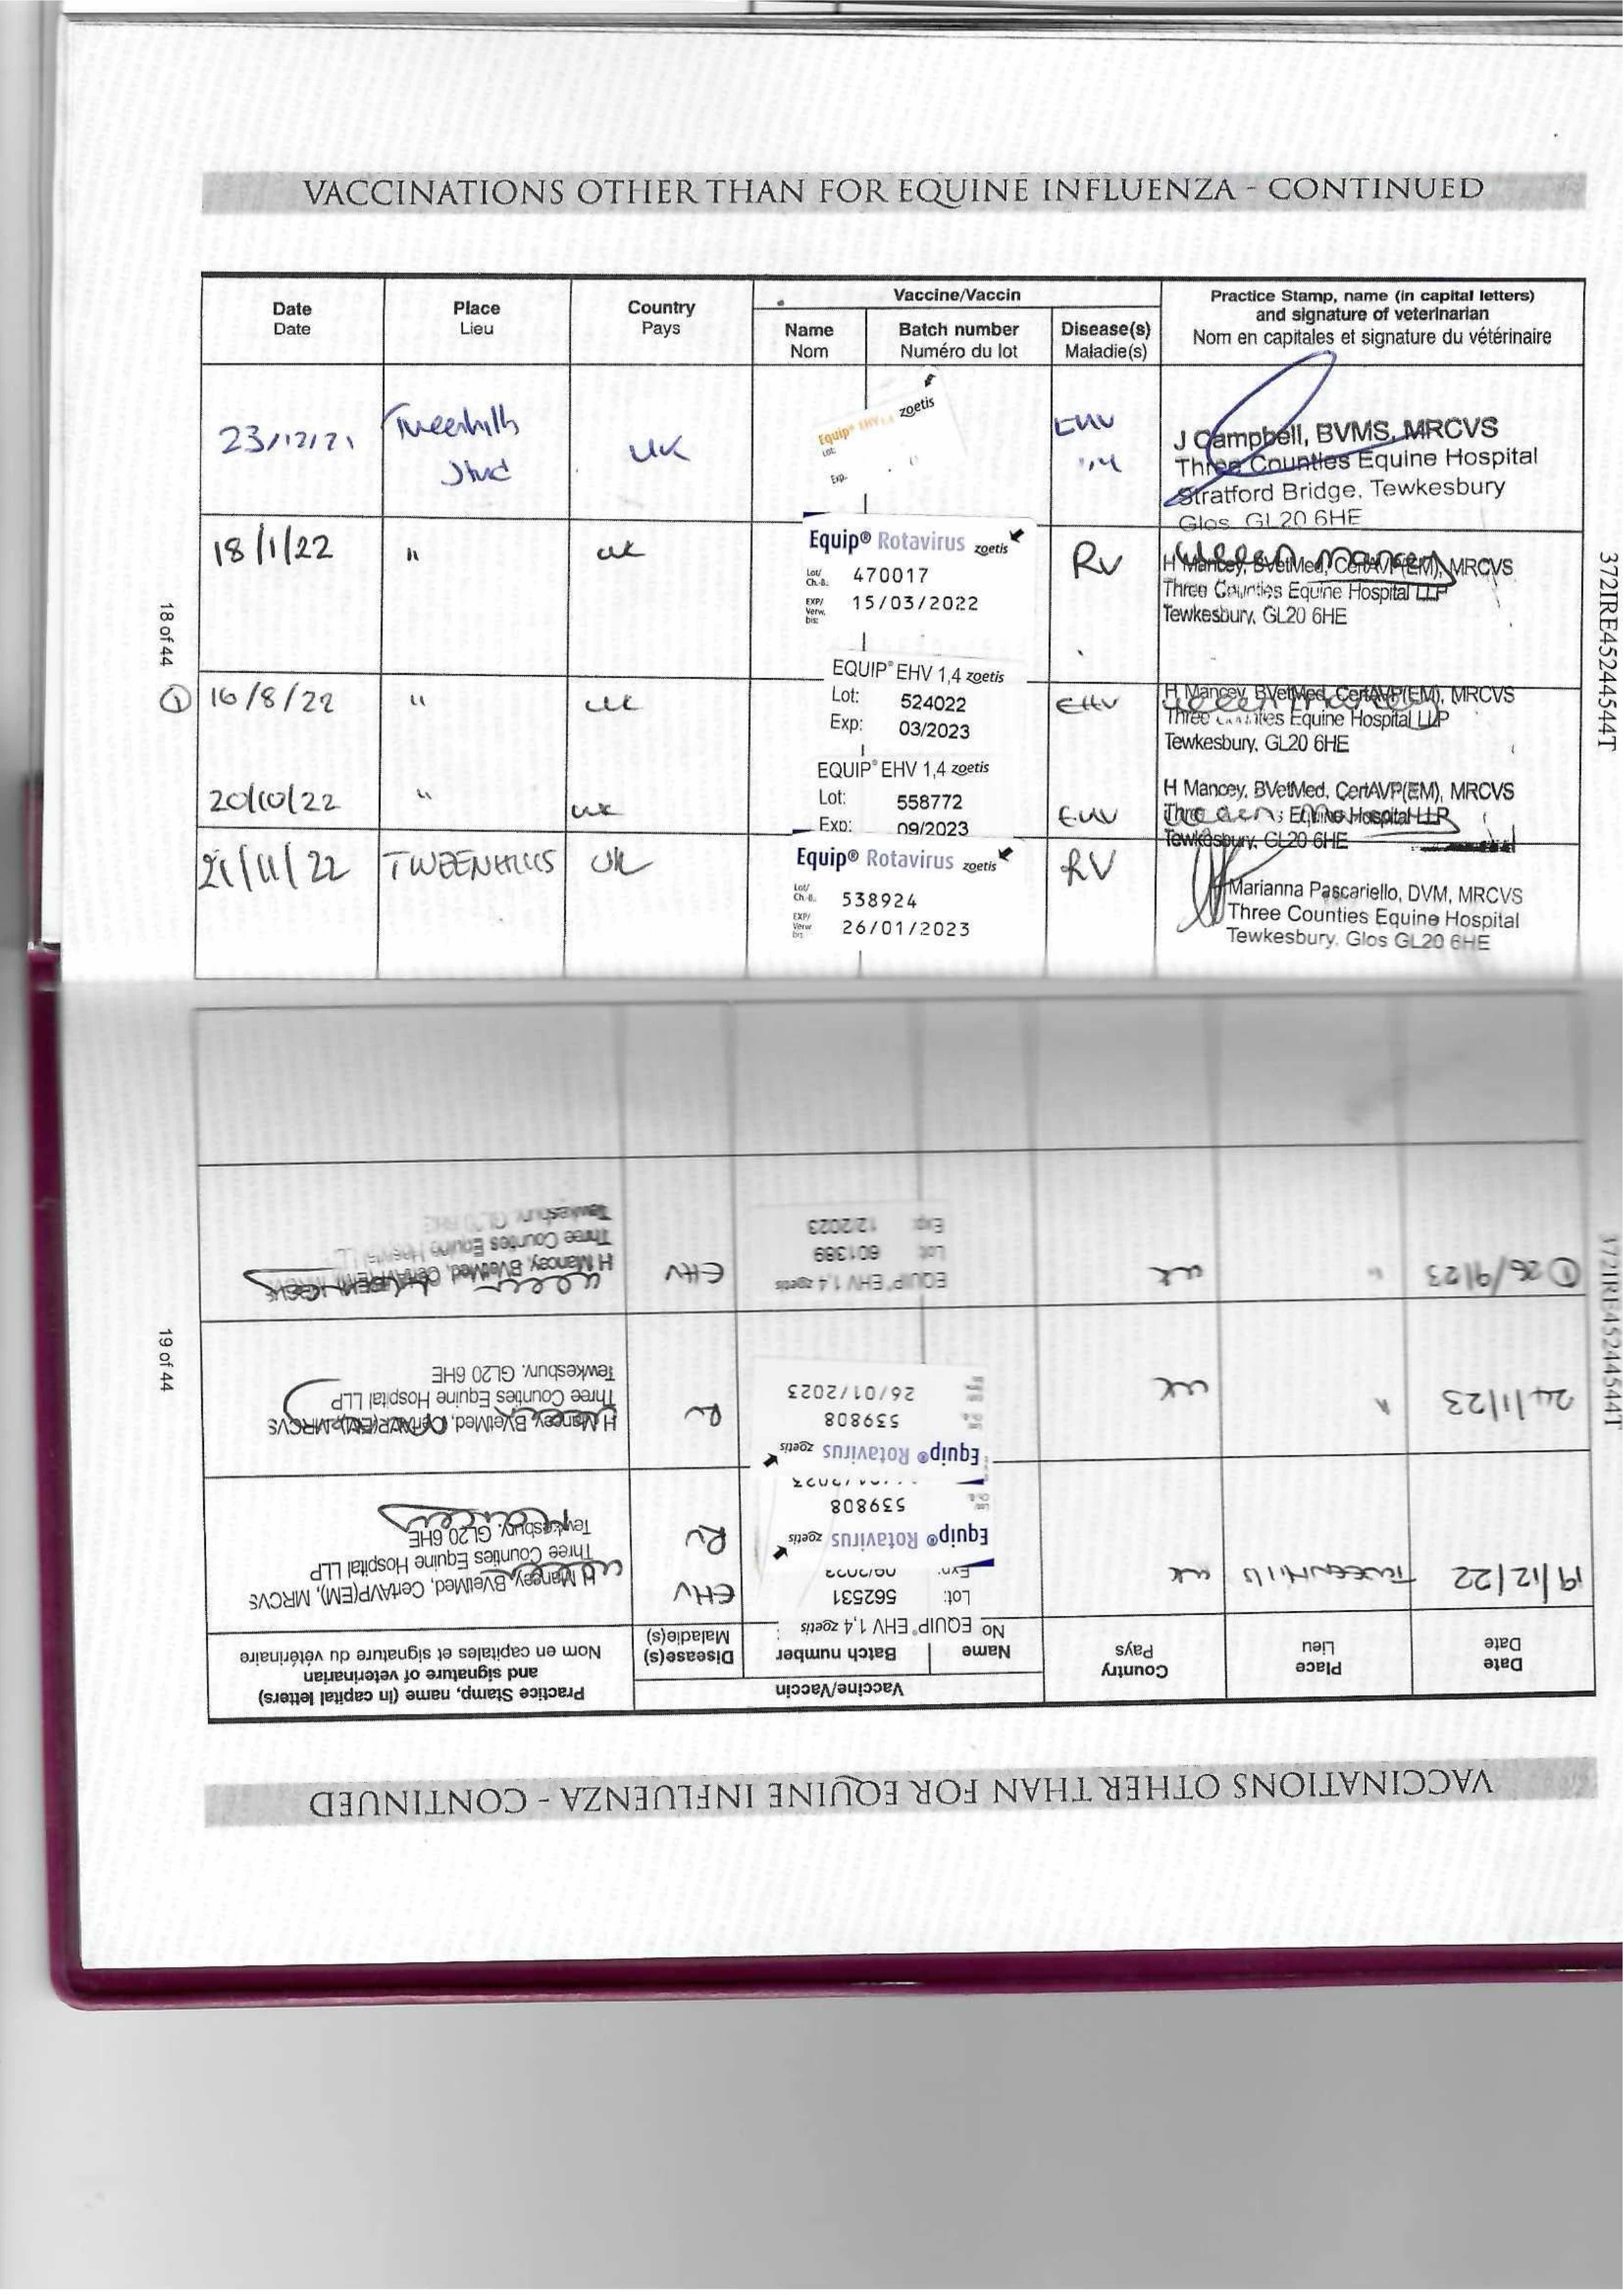 VACCINATIONS OTHER THAN FOR EQUINE INFLUENZA - CONTINUED
Date
Date
Place
Lieu
Country
Pays
Vaccine/Vaccin
Name
Nom
Batch number
Numéro du lot
Disease(s)
Maladie(s)
Practice Stamp, name (in capital letters)
and signature of veterinarian
Nom en capitales et signature du vétérinaire
23/12/21
Tweenhills
Stud
UK
Equip® EHV 1,4 zoetis
Lot:
Exp.
EHV
1,4
J Campbell, BVMS, MRCVS
Three Counties Equine Hospital
Stratford Bridge, Tewkesbury
Glos. GL20 6HE
18/1/22
"
UK
Equip® Rotavirus zoetis
Lot/
Ch.-B.: 470017
EXP/
Verw.
bis: 15/03/2022
RV
H Mancey, BVetMed, CertAVP(EM), MRCVS
Three Counties Equine Hospital LLP
Tewkesbury, GL20 6HE
① 16/8/22
"
UK
EQUIP® EHV 1,4 zoetis
Lot: 524022
Exp: 03/2023
EHV
H Mancey, BVetMed, CertAVP(EM), MRCVS
Three Counties Equine Hospital LLP
Tewkesbury, GL20 6HE
20/10/22
"
UK
EQUIP® EHV 1,4 zoetis
Lot: 558772
Exp: 09/2023
EHV
H Mancey, BVetMed, CertAVP(EM), MRCVS
Three Equine Hospital LLP
Tewkesbury, GL20 6HE
21/11/22
TWEENHILLS
UK
Equip® Rotavirus zoetis
Lot/
Ch.-B.: 538924
EXP/
Verw
bis 26/01/2023
RV
Marianna Pascariello, DVM, MRCVS
Three Counties Equine Hospital
Tewkesbury, Glos GL20 6HE
18 of 44
372IRE45244544T
VACCINATIONS OTHER THAN FOR EQUINE INFLUENZA - CONTINUED
Date
Date
Place
Lieu
Country
Pays
Vaccine/Vaccin
Name
No
Batch number
Disease(s)
Maladie(s)
Practice Stamp, name (in capital letters)
and signature of veterinarian
Nom en capitales et signature du vétérinaire
19/12/22
TWEENHILLS
UK
EQUIP® EHV 1,4 zoetis
Lot: 562531
EHV
Equip® Rotavirus zoetis
539808
RV
H Mancey, BVetMed, CertAVP(EM), MRCVS
Three Counties Equine Hospital LLP
Tewkesbury, GL20 6HE
24/1/23
"
UK
Equip® Rotavirus zoetis
539808
26/01/2023
RV
H Mancey, BVetMed, CertAVP(EM), MRCVS
Three Counties Equine Hospital LLP
Tewkesbury, GL20 6HE
① 26/9/23
"
UK
EQUIP® EHV 1,4 zoetis
Lot 601389
Exp 12/2023
EHV
H Mancey, BVetMed, CertAVP(EM), MRCVS
Three Counties Equine Hospital LL
Tewkesbury, GL20 6HE
19 of 44
372IRE45244544T